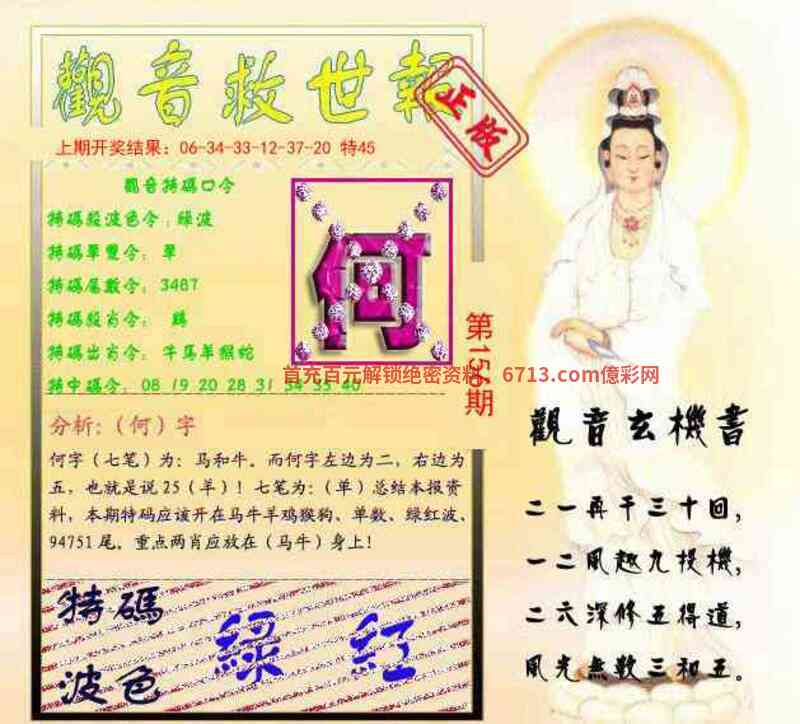 觀音救世報
正版
上期开奖结果：06-34-33-12-37-20 特45
觀音特碼口令
特碼殺波色令：綠波
特碼單雙令：單
特碼尾數令：3487
特碼殺肖令：鷄
特碼出肖令：牛马羊猴蛇
特中碼令：08 19 20 28 31 34 35 40
何
第156期
首充百元解锁绝密资料：6713.com億彩网
分析：（何）字
何字（七笔）为：马和牛。而何字左边为二，右边为
五，也就是说25（羊）！七笔为：（单）总结本报资
料，本期特码应该开在马牛羊鸡猴狗、单数、绿红波、
94751尾。重点两肖应放在（马牛）身上！
特碼
波色
綠 紅
觀音玄機書
二一再干三十回，
一二風趣九投機，
二六深修五得道，
風光無数三和五。